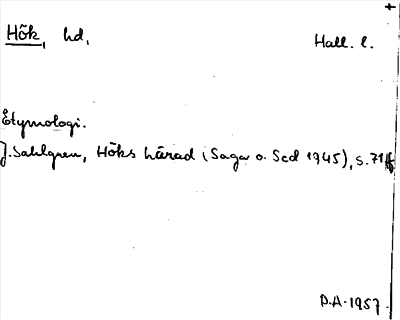 Hök, hd. Hall. l.
Etymologi.
J. Sahlgren, Höks härad (Saga o. Sed 1945), s. 71 ff
P.A. 1957.